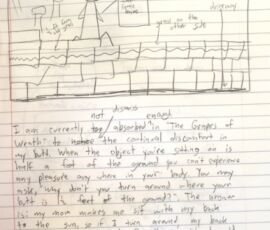 grass on the
other side
dismiss
not enough
I am currently absorbed in "The Grapes of
Wrath" to the continual discomfort in
my butt. When the object you're sitting on is
half a foot off the ground you can't experience
any pleasure any where in your body. You may
ask, "Why don't you turn around where your
butt is 2 feet off the ground?". The answer
is: my mom makes me sit with my back
to the sun, so if I turn around my back